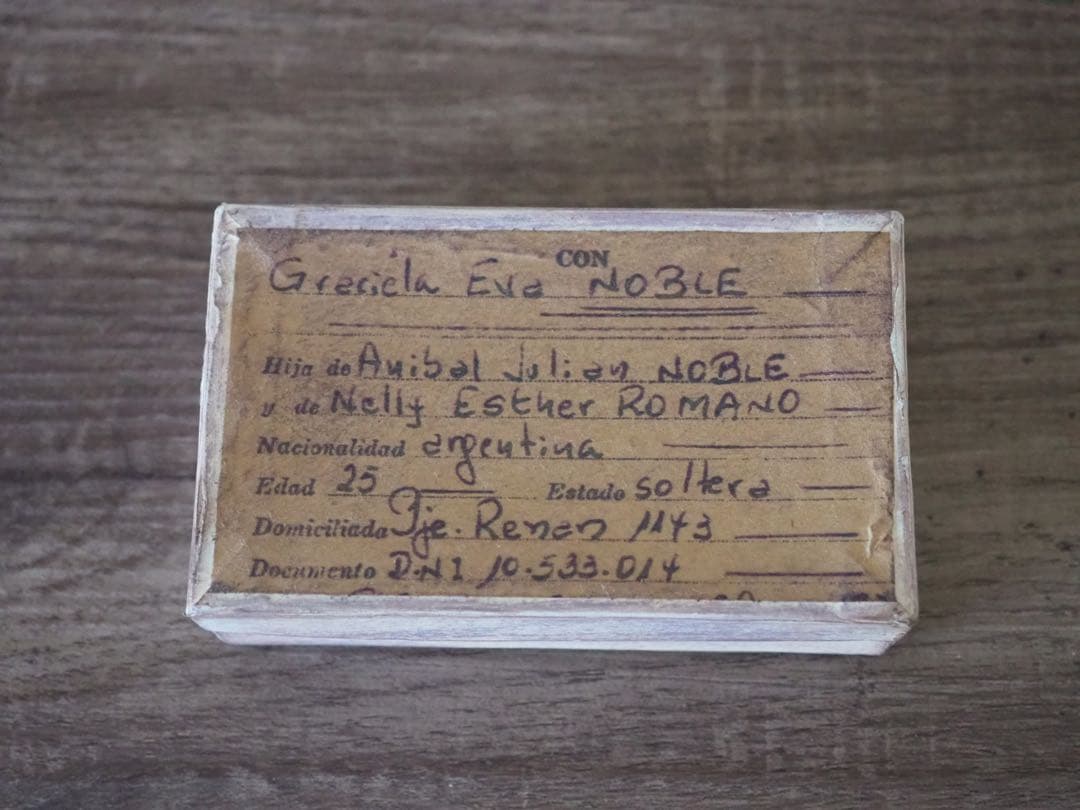 CON
Graciela Eva NOBLE
Hija de Anibal Julian NOBLE
y de Nelly Esther ROMANO
Nacionalidad argentina
Edad 25 Estado soltera
Domiciliada Pje. Renan 1143
Documento D.N I 10.533.014